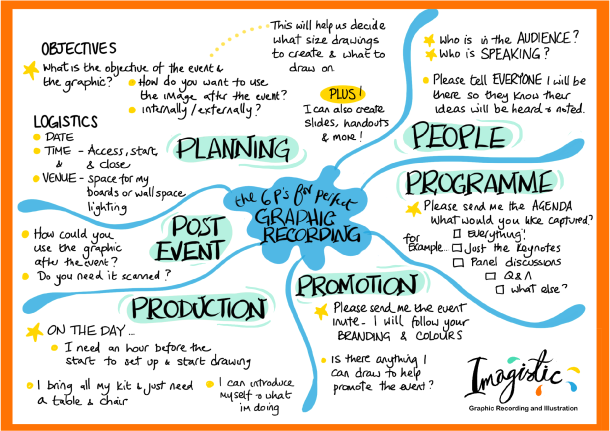 OBJECTIVES
What is the objective of the event &
the graphic?
How do you want to use
the image after the event?
internally / externally?
This will help us decide
what size drawings
to create & what to
draw on
PLUS!
I can also create
slides, handouts
& more!
Who is in the AUDIENCE?
Who is SPEAKING?
Please tell EVERYONE I will be
there so they know their
ideas will be heard & noted.
LOGISTICS
DATE
TIME - Access, start,
& & close
VENUE - space for my
boards or wall space
lighting
PLANNING
PEOPLE
the 6 P's for perfect
GRAPHIC
RECORDING
PROGRAMME
Please send me the AGENDA
What would you like captured?
for
example...
Everything!
Just the keynotes
Panel discussions
Q & A
What else?
POST
EVENT
How could you
use the graphic
after the event?
Do you need it scanned?
PRODUCTION
ON THE DAY...
I need an hour before the
start to set up & start drawing
I bring all my kit & just need
a table & chair
I can introduce
myself & what
im doing
PROMOTION
Please send me the event
invite - I will follow your
BRANDING & COLOURS
Is there anything I
can draw to help
promote the event?
Imagistic
Graphic Recording and Illustration